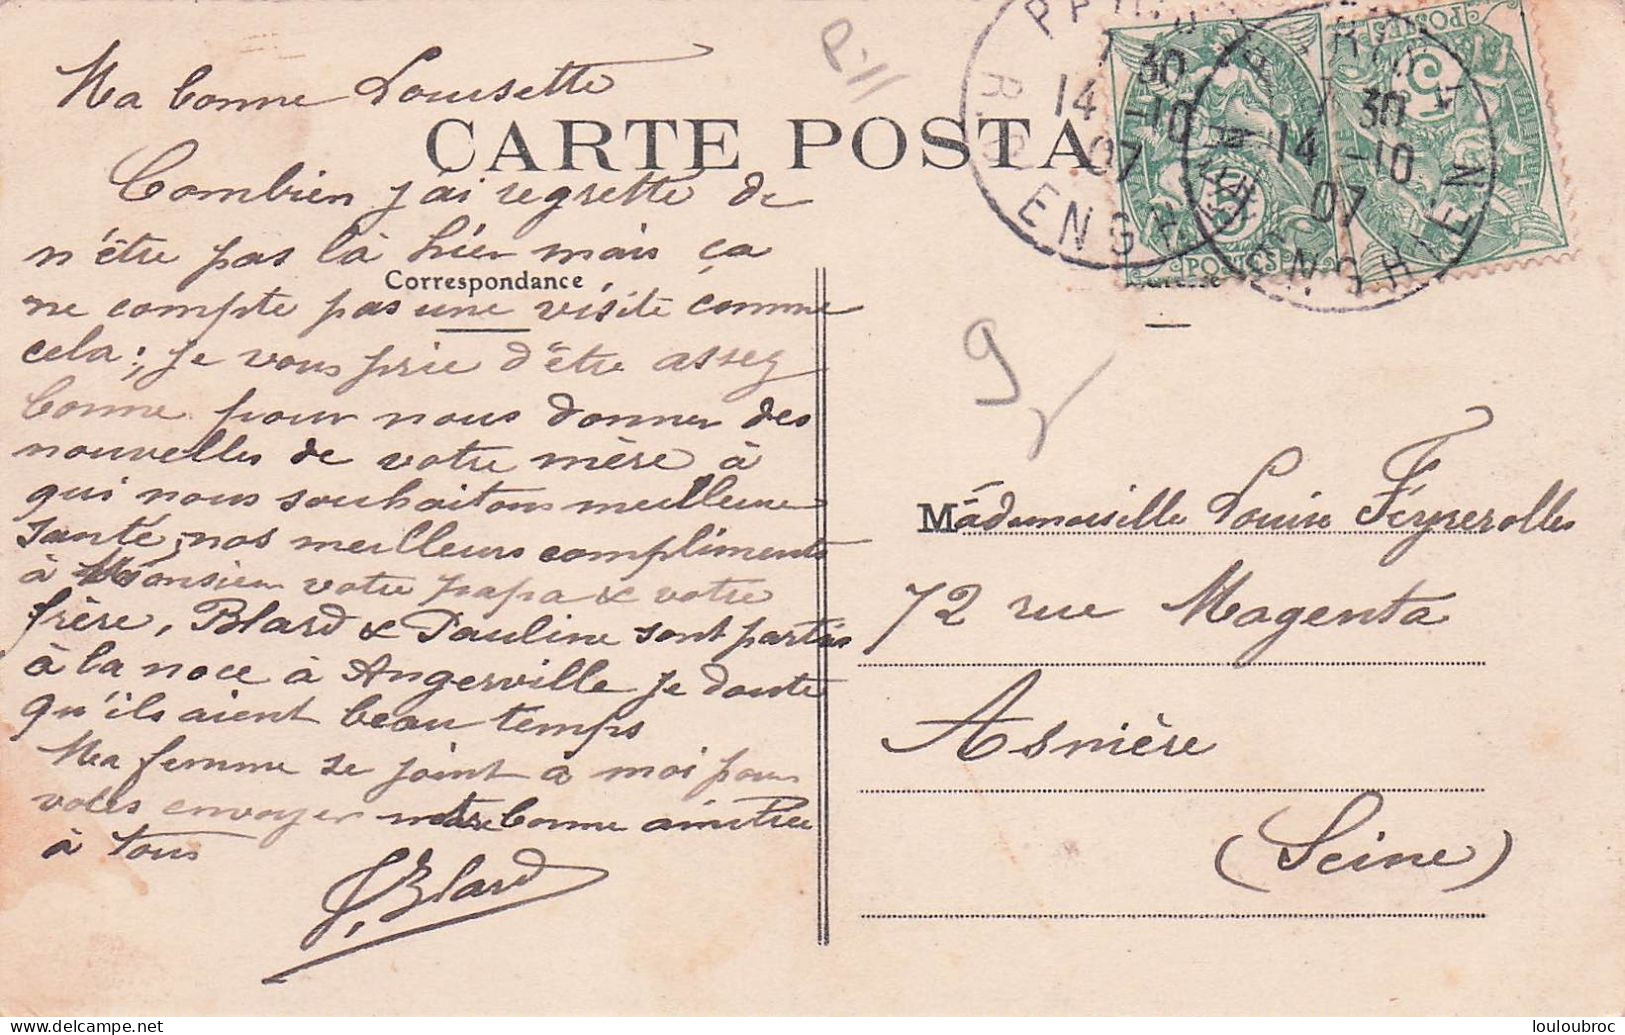 Ma bonne Lousette
CARTE POSTA
Combien j'ai regretté de
n'être pas là hier mais ça
Correspondance
ne compte pas une visite comme
cela; je vous prie d'être assez
bonne pour nous donner des
nouvelles de votre mère à
qui nous souhaitons meilleure
santé, nos meilleurs compliments
à Monsieur votre papa & votre
frère, Blard & Pauline sont partis
à la noce à Angerville je doute
qu'ils aient beau temps
Ma femme se joint à moi pour
vous envoyer notre bonne amitiée
à tous
Blard
30
14 -10
07
ENGH
30
14 -10
07
ENGHIEN
POSTES
5
POSTES
5
9
Mademoiselle Louise Feyrerolles
72 rue Magenta
Asnière
(Seine)
delcampe.net
louloubroc